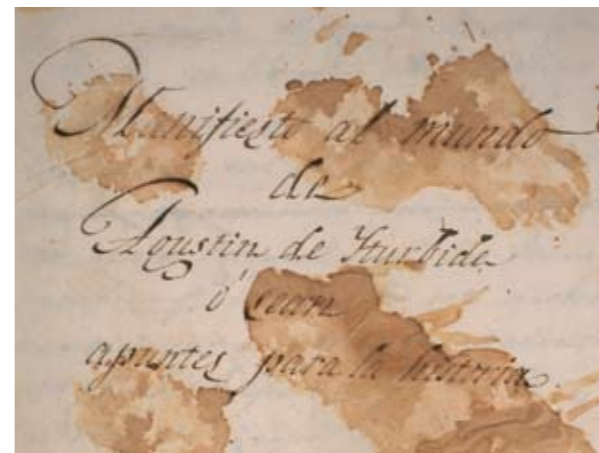 Manifiesto al mundo
de
Agustin de Yturbide
ó sean
apuntes para la historia.